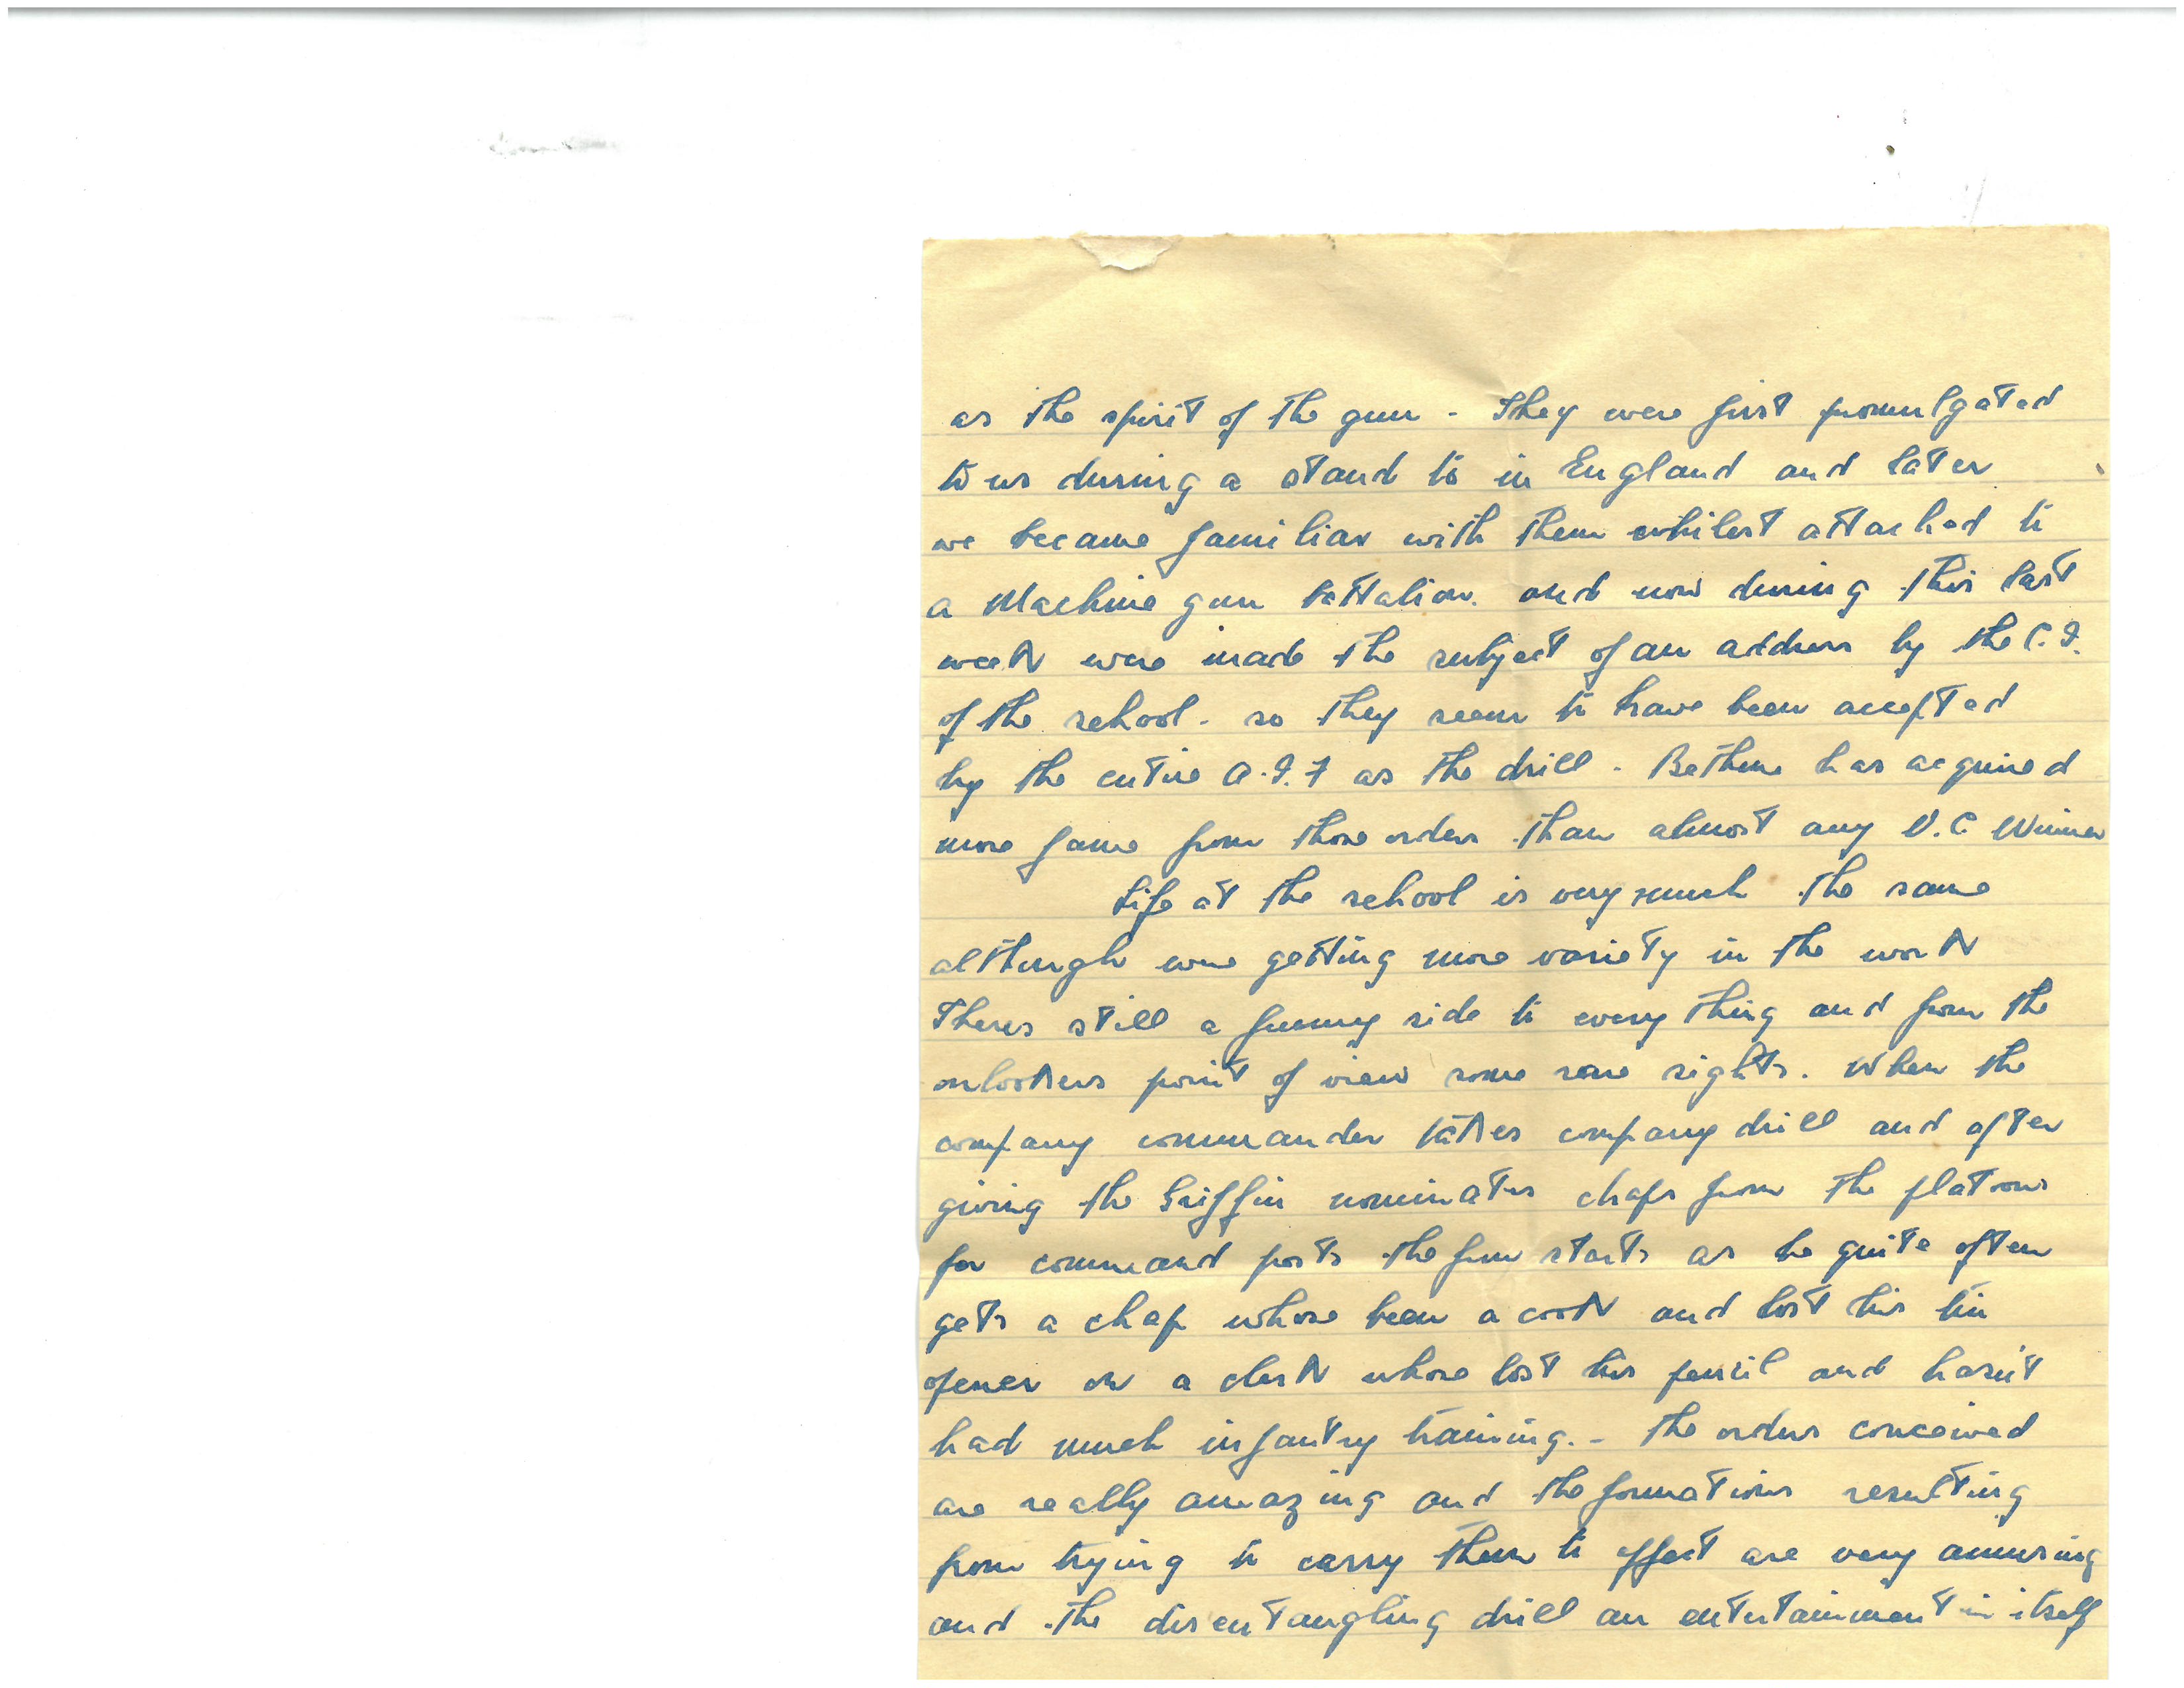 as the spirit of the gun - They were first promulgated
to us during a stand to in England and later
we became familiar with them whilest attached to
a Machine gun battalion. and now during this last
week were made the subject of an address by the C.I.
of the school - so they seem to have been accepted
by the entire A.I.F as the drill - Bethune has acquired
more fame from those orders than almost any V.C Winner
Life at the school is very much the same
although were getting more variety in the work
Theres still a funny side to every thing and from the
onlookers point of view some rare sights. When the
company commander takes company drill and after
giving the Griffin nominates chaps from the platoons
for command posts the fun starts as he quite often
gets a chap whose been a cook and lost his tin
opener or a clerk whose lost his pencil and hasn't
had much infantry training. - The orders conceived
are really amazing and the formations resulting
from trying to carry them to effect are very amusing
and the disentangling drill an entertainment in itself